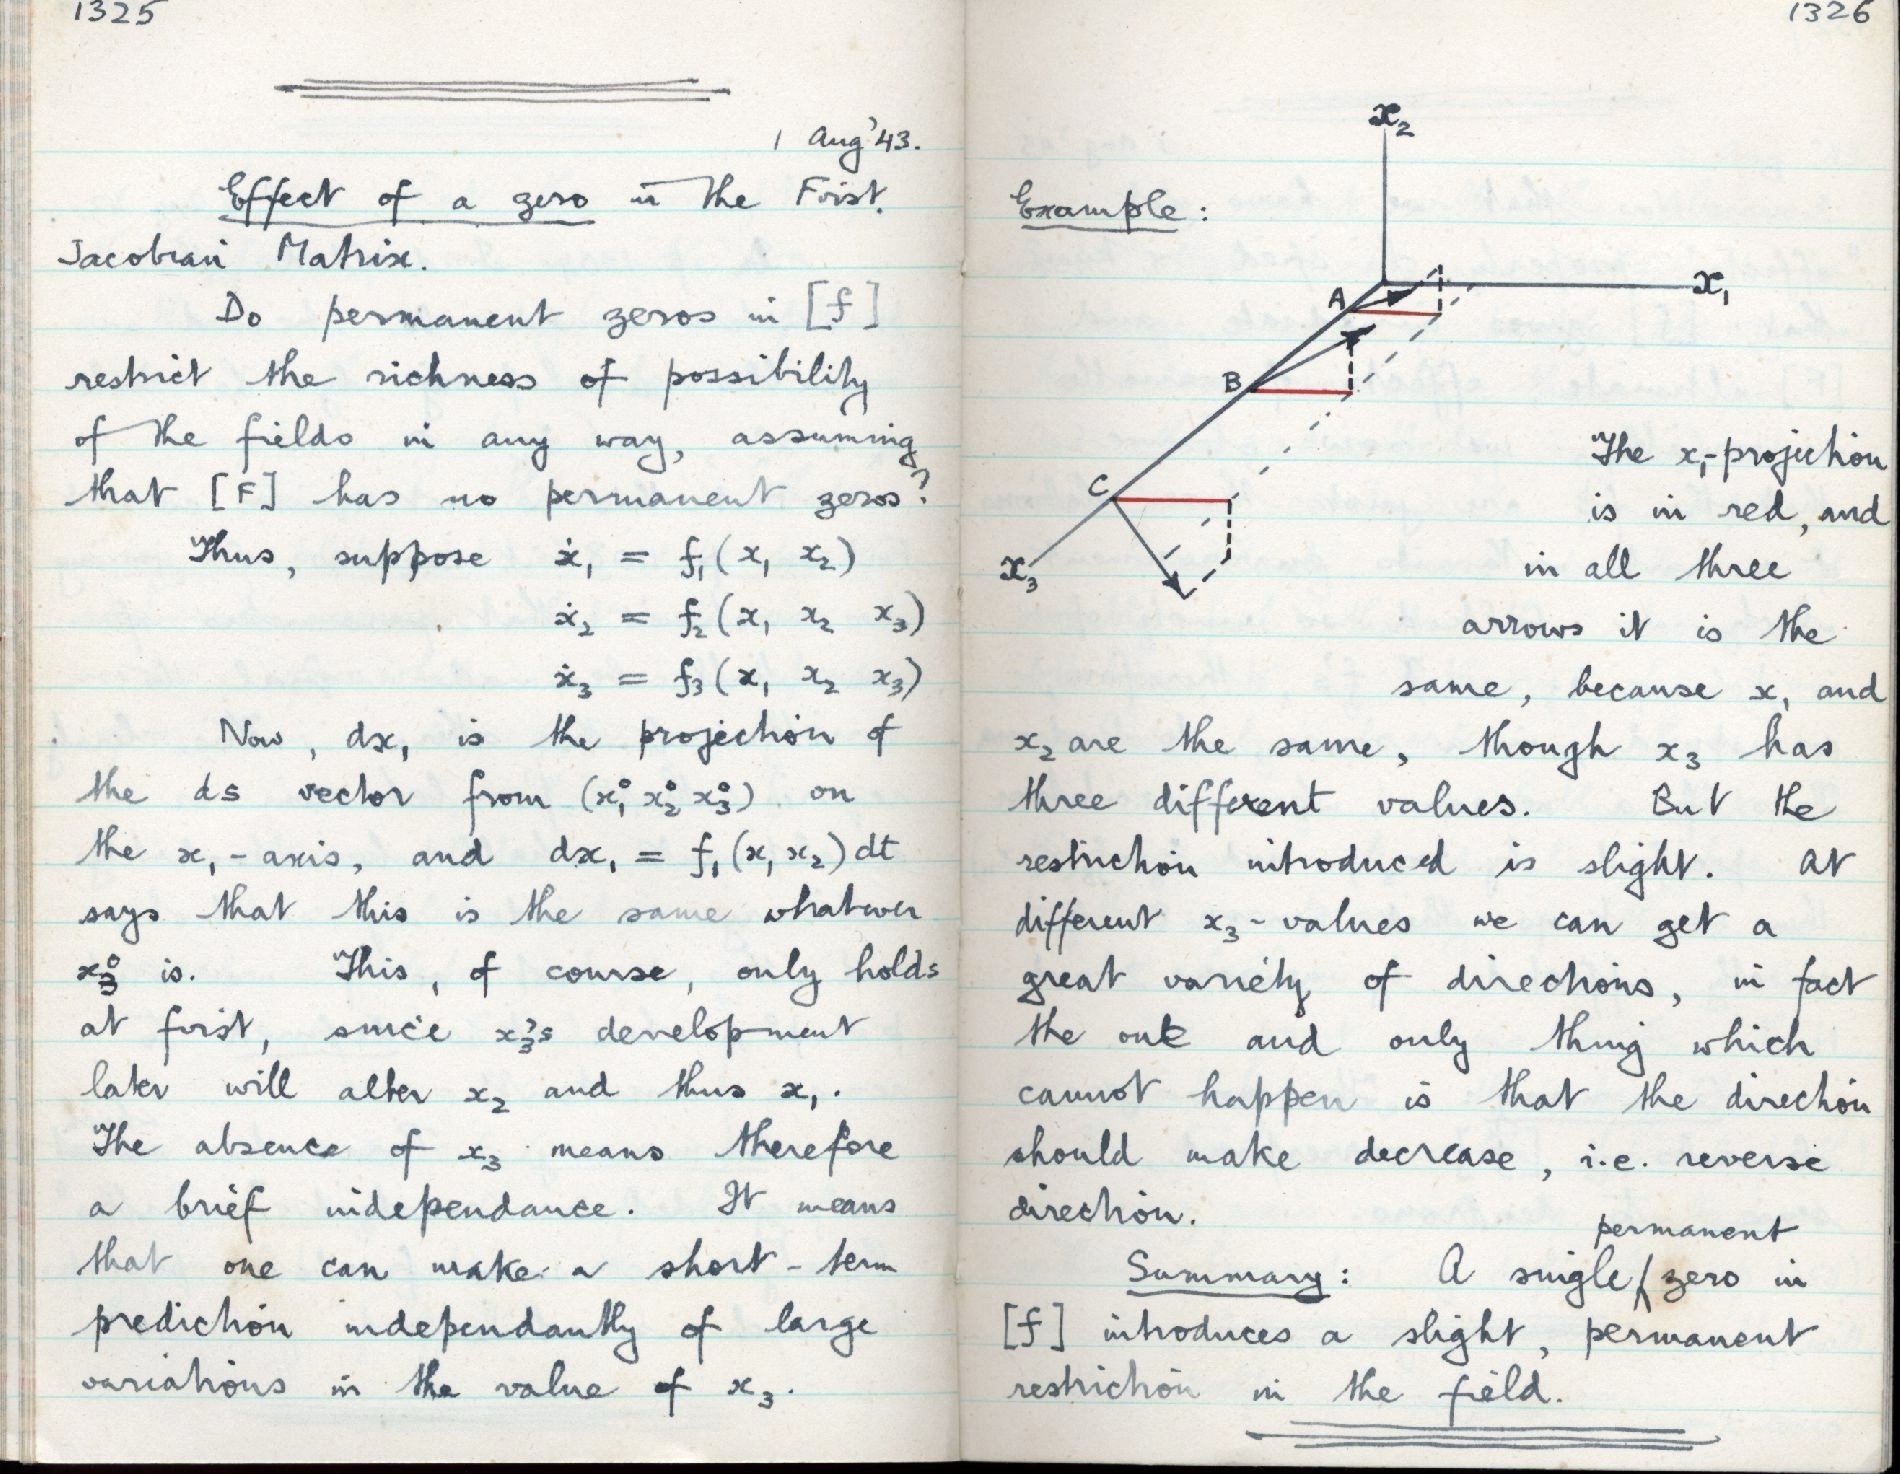 1325
1 Aug '43.
Effect of a zero in the First
Jacobian Matrix.
Do permanent zeros in [f]
restrict the richness of possibility
of the fields in any way, assuming
that [F] has no permanent zeros?
Thus, suppose ẋ₁ = f₁(x₁ x₂)
ẋ₂ = f₂(x₁ x₂ x₃)
ẋ₃ = f₃(x₁ x₂ x₃)
Now, dx₁ is the projection of
the ds vector from (x₁⁰ x₂⁰ x₃⁰) on
the x₁-axis, and dx₁ = f₁(x₁ x₂)dt
says that this is the same whatever
x₃⁰ is. This, of course, only holds
at first, since x₃'s development
later will alter x₂ and thus x₁.
The absence of x₃ means therefore
a brief independance. It means
that one can make a short-term
prediction independantly of large
variations in the value of x₃.
1326
x₂
Example:
x₁
A
B
C
x₃
The x₁-projection
is in red, and
in all three
arrows it is the
same, because x₁ and
x₂ are the same, though x₃ has
three different values. But the
restriction introduced is slight. At
different x₃-values we can get a
great variety of directions, in fact
the one and only thing which
cannot happen is that the direction
should make decrease, i.e. reverse
direction.
permanent
Summary: A single zero in
[f] introduces a slight, permanent
restriction in the field.